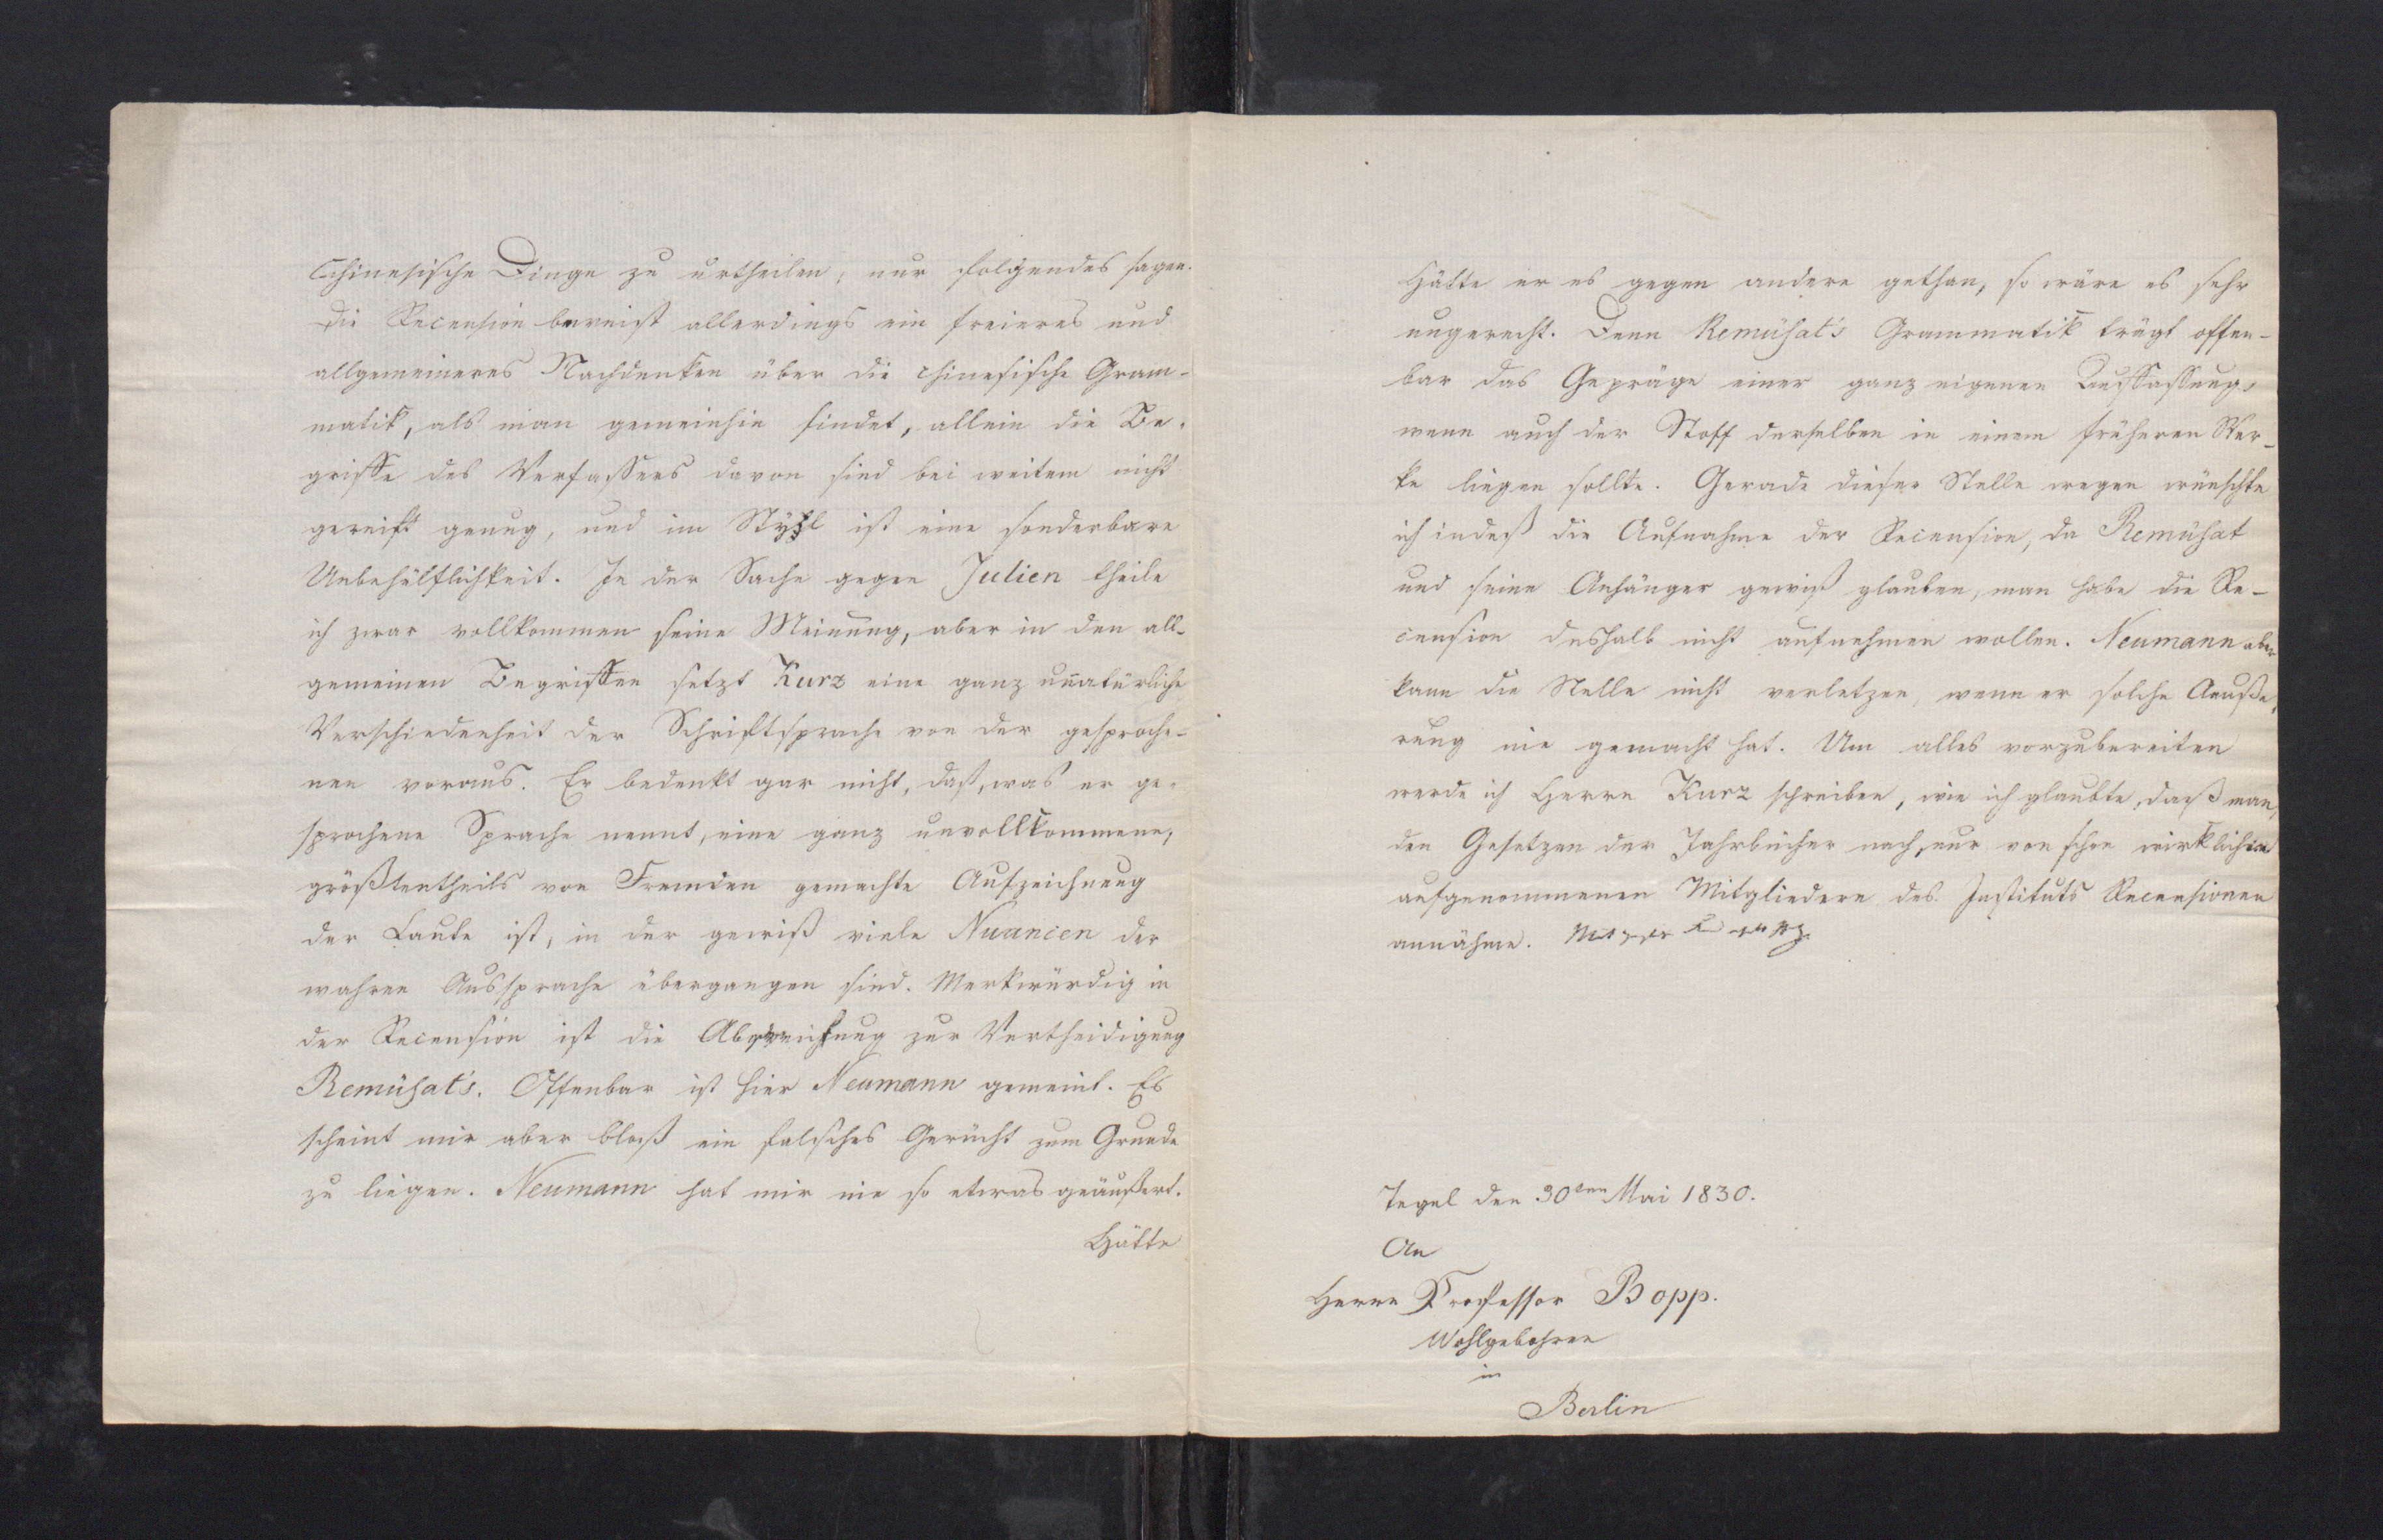 Chinesische Dinge zu urtheilen, nur folgendes sagen.
Die Recension beweist allerdings ein freieres und
allgemeineres Nachdenken über die chinesische Gram-
matik, als man gemeinhin findet, allein die Be-
griffe des Verfassers davon sind bei weitem nicht
gereift genug, und im Styl ist eine sonderbare
Unbehülflichkeit. In der Sache gegen Julien theile
ich zwar vollkommen seine Meinung, aber in den all-
gemeinen Begriffen setzt Kurz eine ganz unnatürliche
Verschiedenheit der Schriftsprache von der gesproche-
nen voraus. Er bedenkt gar nicht, daß, was er ge-
sprochene Sprache nennt, eine ganz unvollkommene,
größtentheils von Fremden gemachte Aufzeichnung
der Laute ist, in der gewiß viele Nuancen der
wahren Aussprache übergangen sind. Merkwürdig in
der Recension ist die Abweichung zur Vertheidigung
Remüsat's. Offenbar ist hier Neumann gemeint. Es
scheint mir aber bloß ein falsches Gerücht zum Grunde
zu liegen. Neumann hat mir nie so etwas geäußert.
Hätte
Hätte er es gegen andere gethan, so wäre es sehr
ungerecht. Denn Remüsat's Grammatik trägt offen-
bar das Gepräge einer ganz eigenen Auffassung,
wenn auch der Stoff derselben in einem früheren Wer-
ke liegen sollte. Gerade dieser Stelle wegen wünschte
ich indeß die Aufnahme der Recension, da Remüsat
und seine Anhänger gewiß glauben, man habe die Re-
cension deshalb nicht aufnehmen wollen. Neumann aber
kann die Stelle nicht verletzen, wenn er solche Aeuße-
rung nie gemacht hat. Um alles vorzubereiten
werde ich Herrn Kurz schreiben, wie ich glaubte, daß man,
den Gesetzen der Jahrbücher nach, nur von schon wirklichen
aufgenommenen Mitgliedern des Instituts Recensionen
annähme.
Tegel den 30sten Mai 1830.
An
Herrn Professor Bopp.
Wohlgebohren
in
Berlin